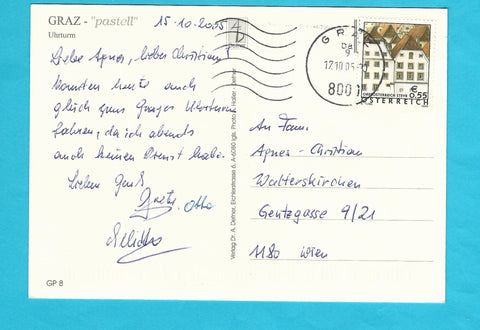 GRAZ - "pastell"
Uhrturm
15.10.2005
Liebe Agnes, lieber Christian!
Konnten heute auch
gleich zum Grazer Uhrturm
fahren, da ich abends
auch keinen Dienst habe.
Lieben Gruß
Otto
GP 8
Verlag Dr. A. Defner, Eichlerstrasse 6, A-6080 Igls, Photo
GRAZ
12.10.05
800
OBERÖSTERREICH STEYR
€ 0,55
ÖSTERREICH
An Fam.
Agnes - Christian
Walterskirchen
Gentzgasse 9/21
1180 Wien